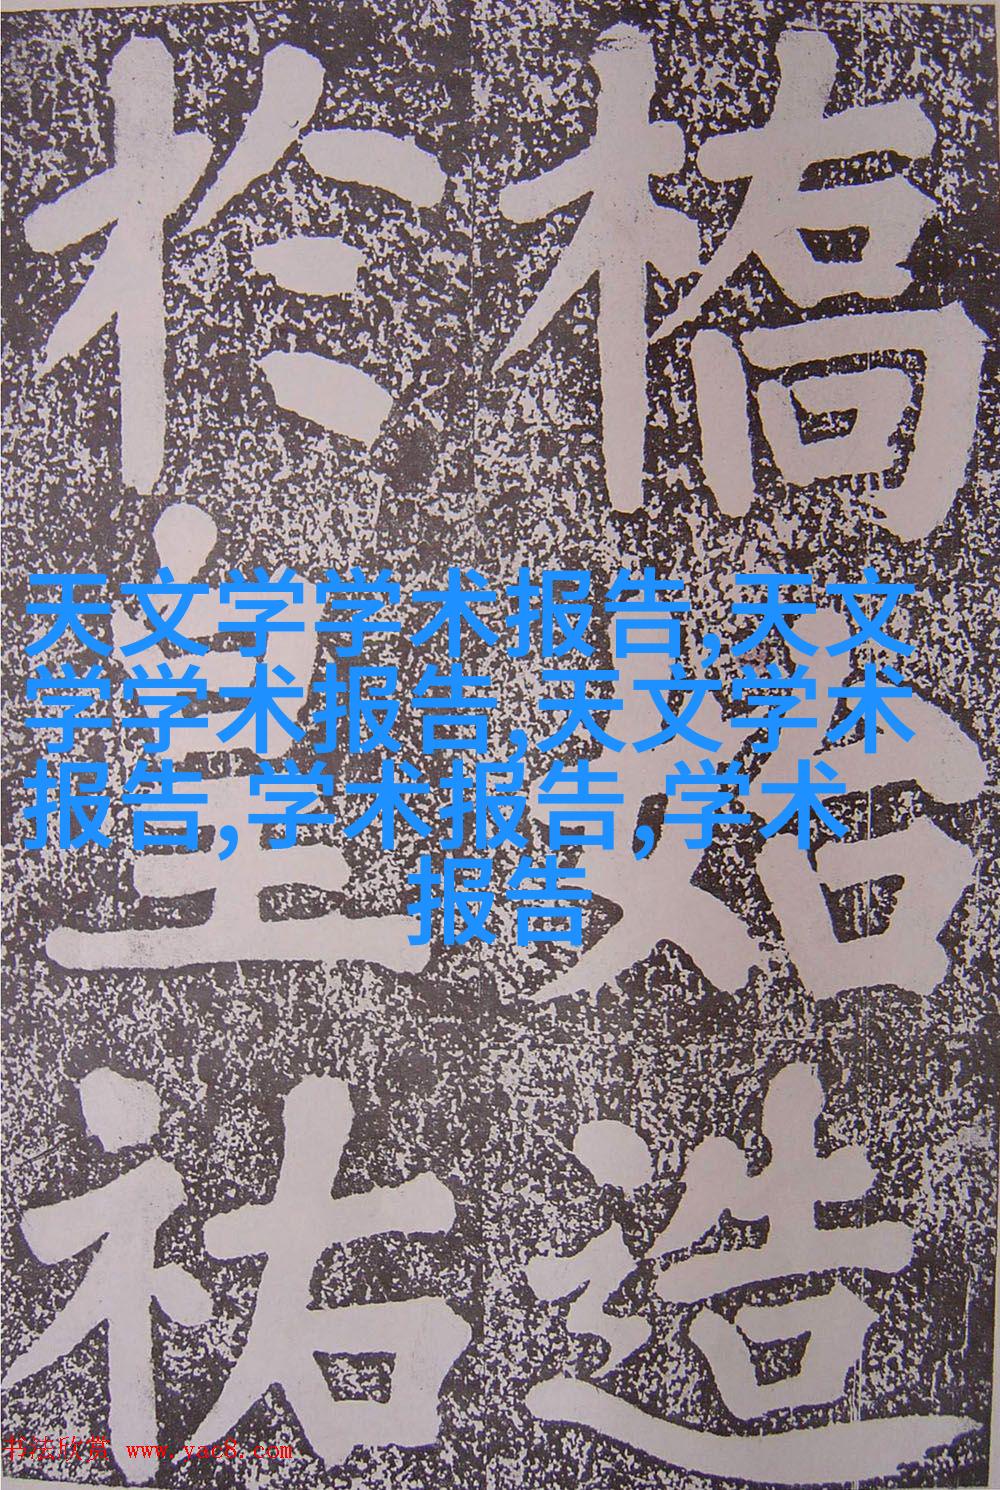 橋始造
於皇祐
天文学学术报告,天文
学学术报告,天文学术
报告,学术报告,学术
报告
书法欣赏 www.yac8.com